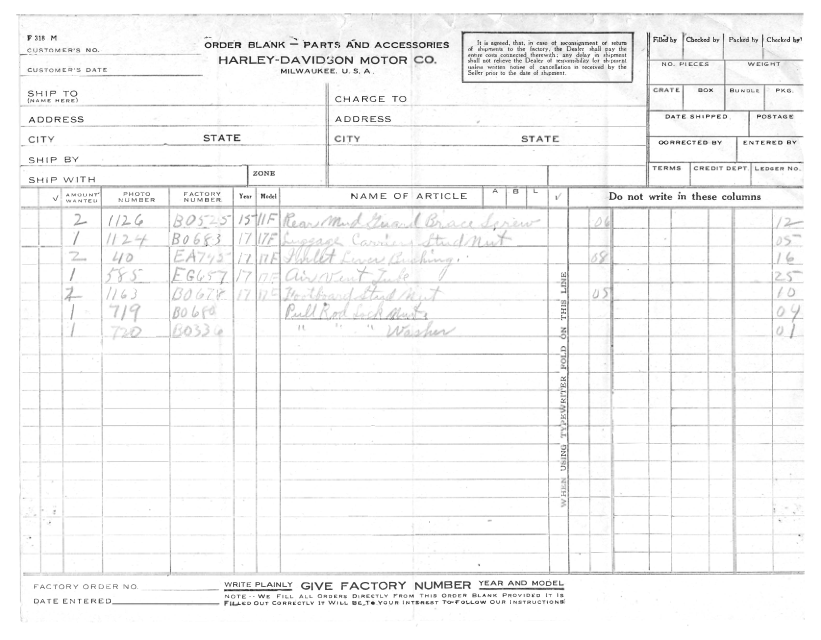 F 318 M
CUSTOMER'S NO.
CUSTOMER'S DATE
ORDER BLANK — PARTS AND ACCESSORIES
HARLEY-DAVIDSON MOTOR CO.
MILWAUKEE, U. S. A.
It is agreed, that, in case of reconsignment or return
of shipments to the factory, the Dealer shall pay the
entire costs connected therewith; any delay in shipment
shall not relieve the Dealer of responsibility for shipment
unless written notice of cancellation is received by the
Seller prior to the date of shipment.
Filled by Checked by Packed by Checked by
NO. PIECES WEIGHT
CRATE BOX BUNDLE PKG.
DATE SHIPPED POSTAGE
CORRECTED BY ENTERED BY
TERMS CREDIT DEPT. LEDGER NO.
SHIP TO
(NAME HERE)
CHARGE TO
ADDRESS ADDRESS
CITY STATE CITY STATE
SHIP BY
SHIP WITH ZONE
√ AMOUNT WANTED PHOTO NUMBER FACTORY NUMBER Year Model NAME OF ARTICLE A B L √ Do not write in these columns
2 1126 BO525 15 11F Rear Mud Guard Brace Screw 06 12
1 1124 BO683 17 17F Luggage Carrier Stud Nut 05
2 40 17 17F Inlet Lever Bushing. 08 16
1 585 EG657 17 17F Air Vent Tube 25
2 1163 BO678 17 17F Footboard Stud Nut 05 10
1 719 BO680 Pull Rod Lock Nut 04
1 720 " " " Washer 01
WHEN USING TYPEWRITER FOLD ON THIS LINE
FACTORY ORDER NO.
DATE ENTERED
WRITE PLAINLY GIVE FACTORY NUMBER YEAR AND MODEL
NOTE -- WE FILL ALL ORDERS DIRECTLY FROM THIS ORDER BLANK PROVIDED IT IS
FILLED OUT CORRECTLY IT WILL BE TO YOUR INTEREST TO FOLLOW OUR INSTRUCTIONS